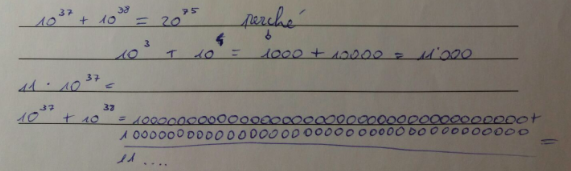 10³⁷ + 10³⁸ = 20⁷⁵ perché
10³ + 10⁴ = 1000 + 10000 = 11'000
11 · 10³⁷ =
10³⁷ + 10³⁸ = 10000000000000000000000000000000000000 +
100000000000000000000000000000000000000 =
11 ....